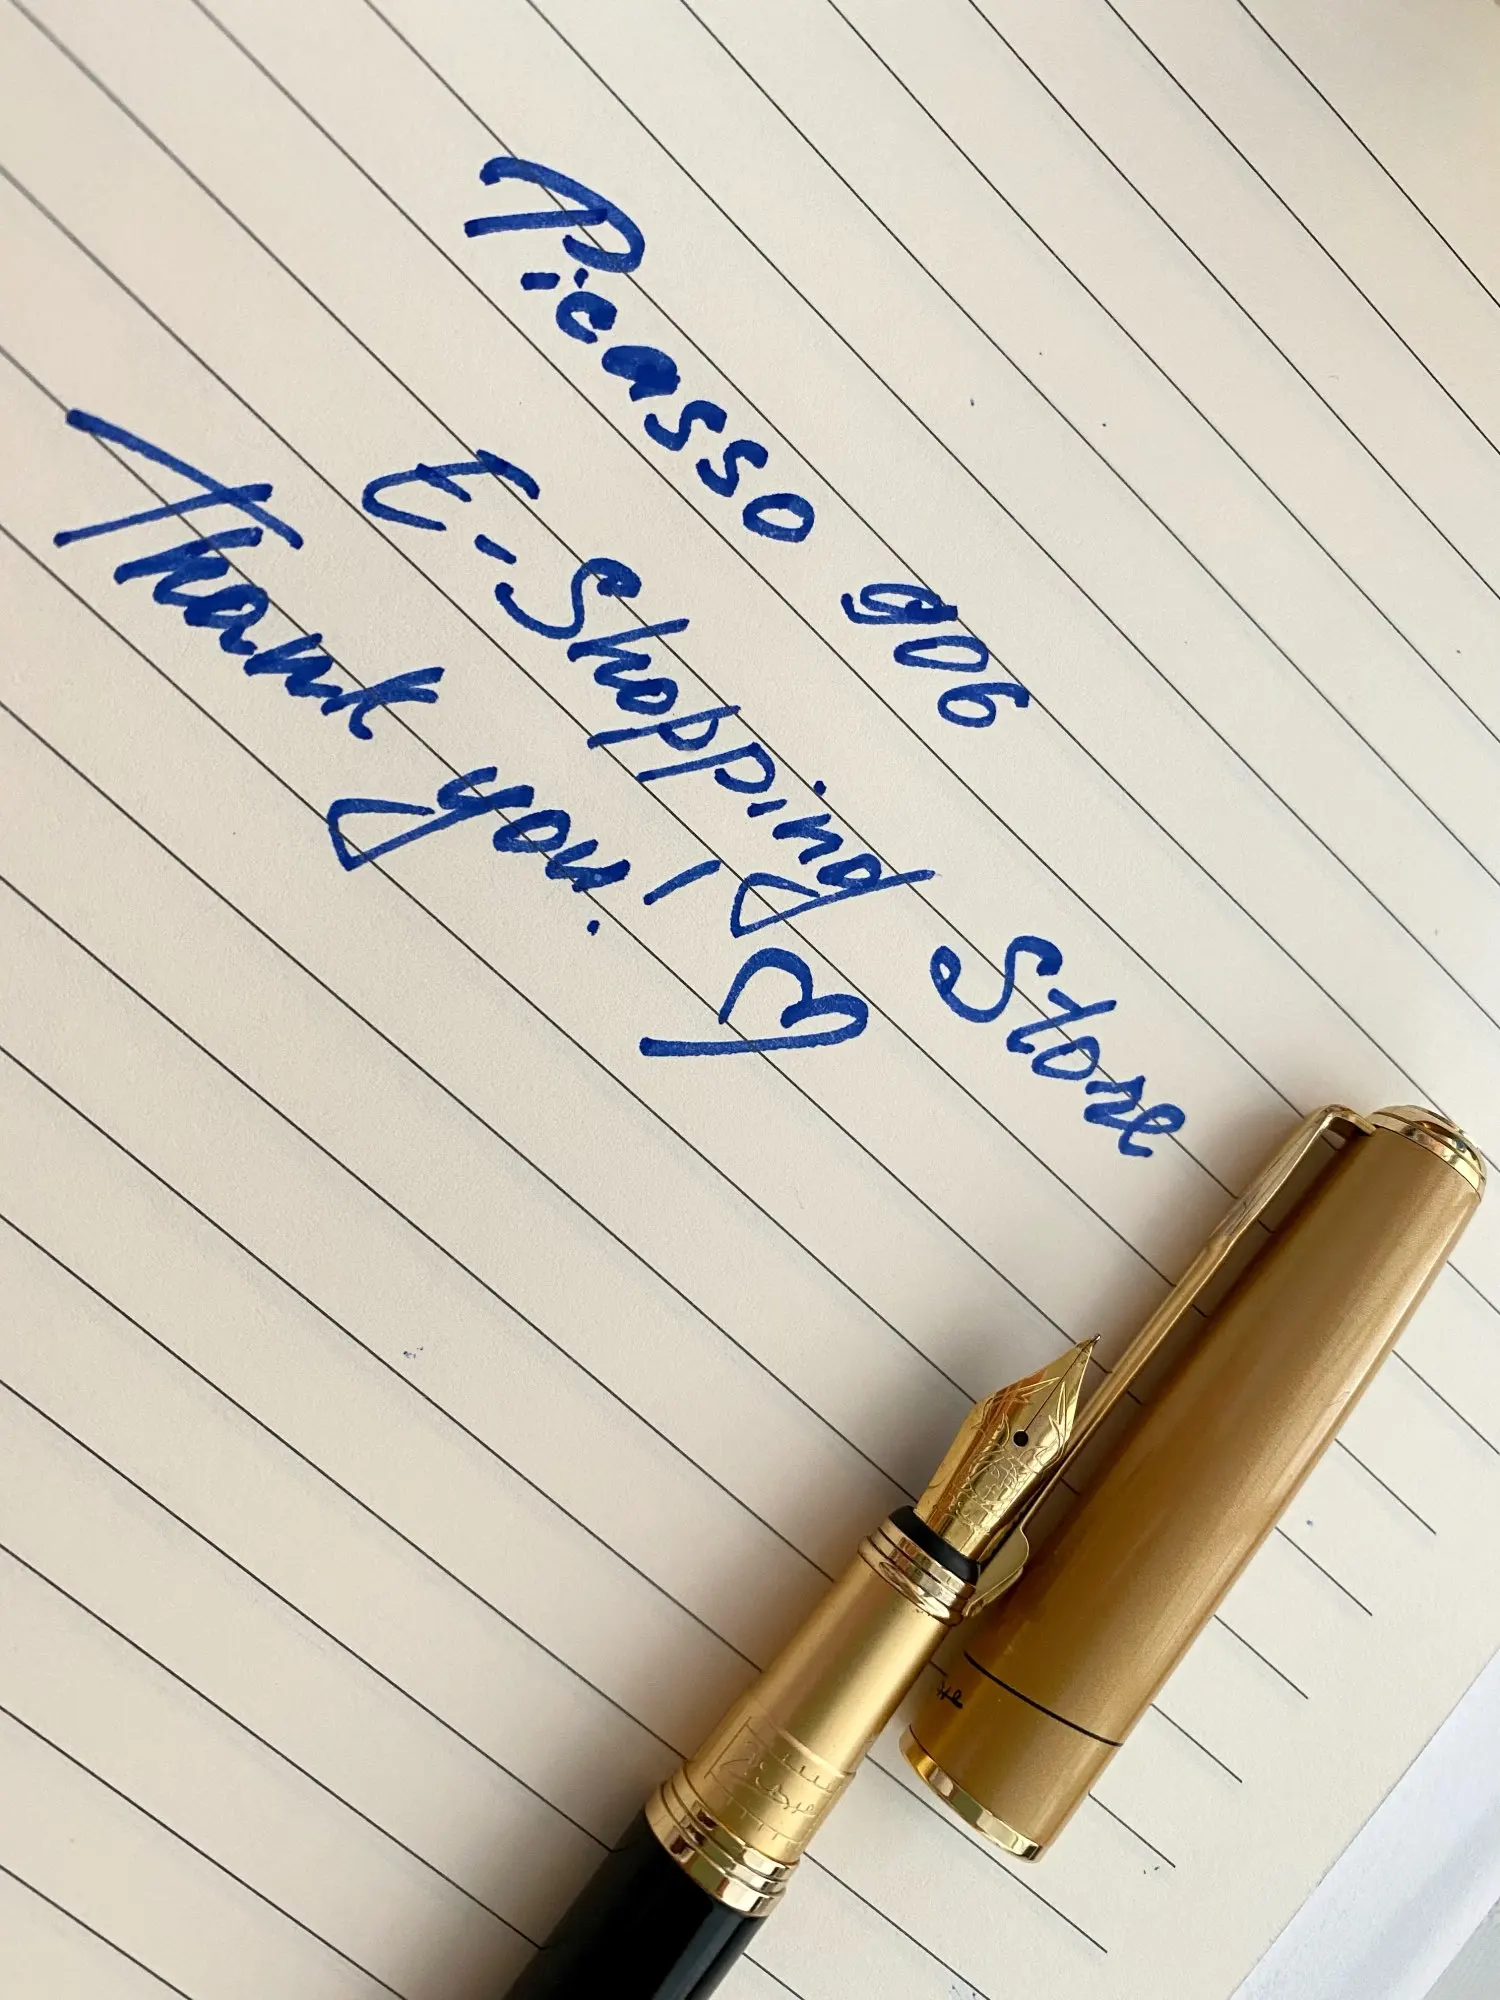 Picasso 906
E-Shopping Store
Thank you! ♡